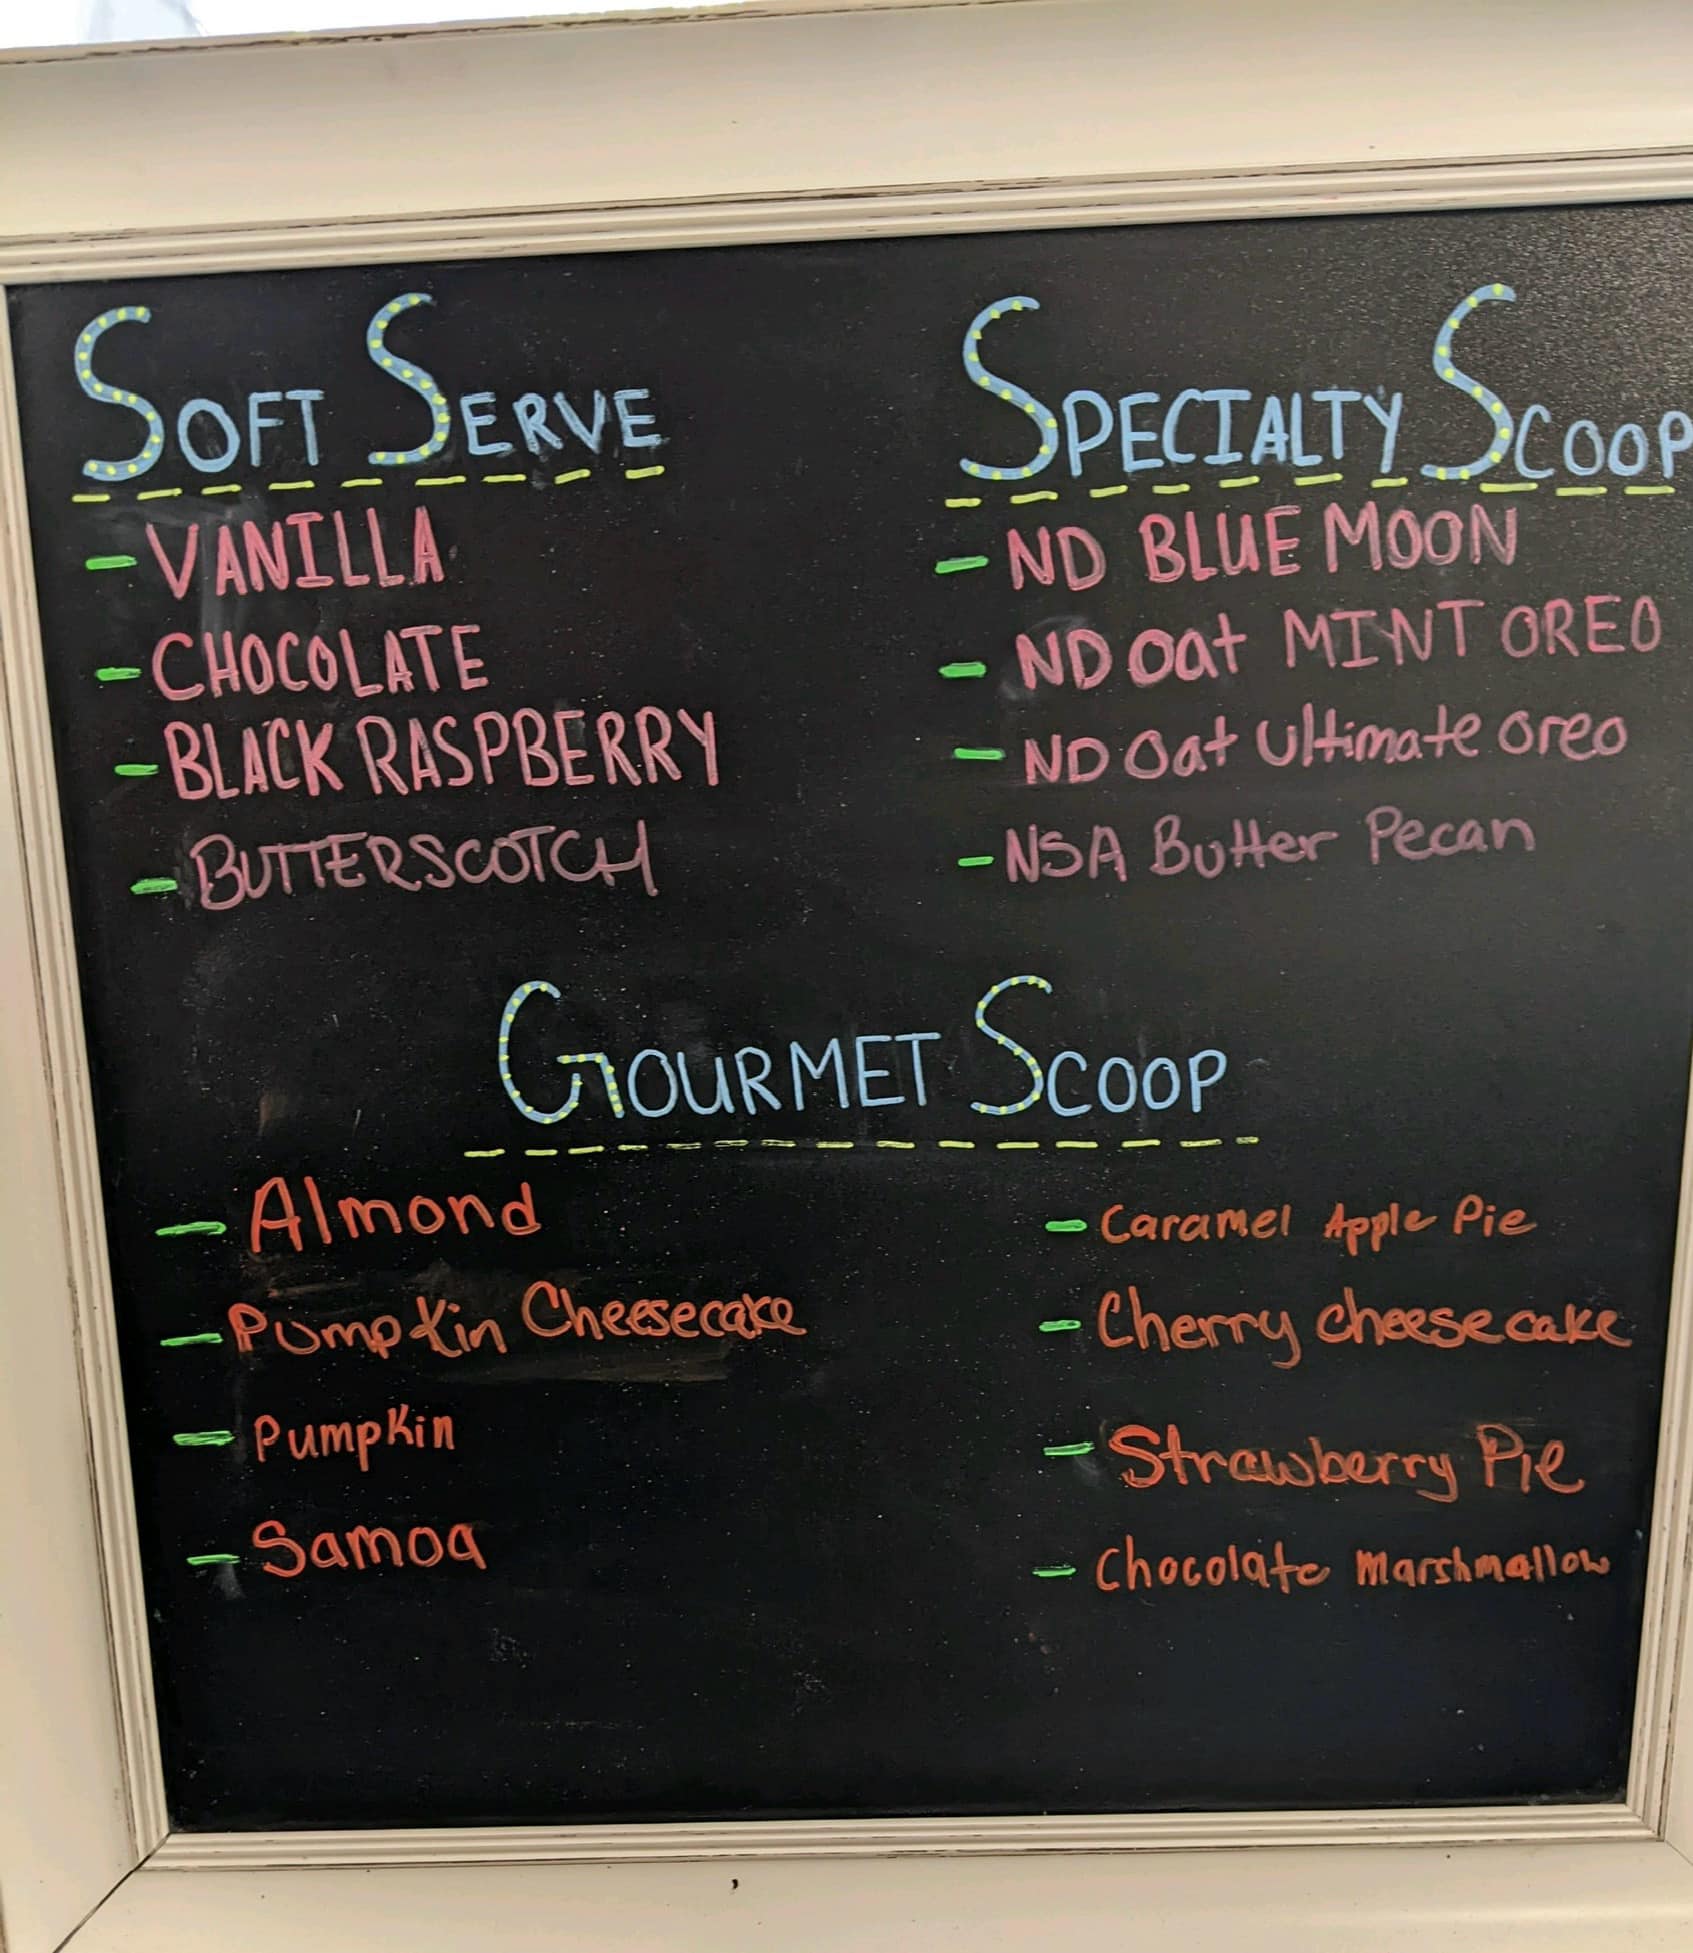 SOFT SERVE
- VANILLA
- CHOCOLATE
- BLACK RASPBERRY
- BUTTERSCOTCH
SPECIALTY SCOOP
- ND BLUE MOON
- ND Oat MINT OREO
- ND Oat Ultimate Oreo
- NSA Butter Pecan
GOURMET SCOOP
- Almond
- Pumpkin Cheesecake
- Pumpkin
- Samoa
- Caramel Apple Pie
- Cherry cheesecake
- Strawberry Pie
- Chocolate Marshmallow